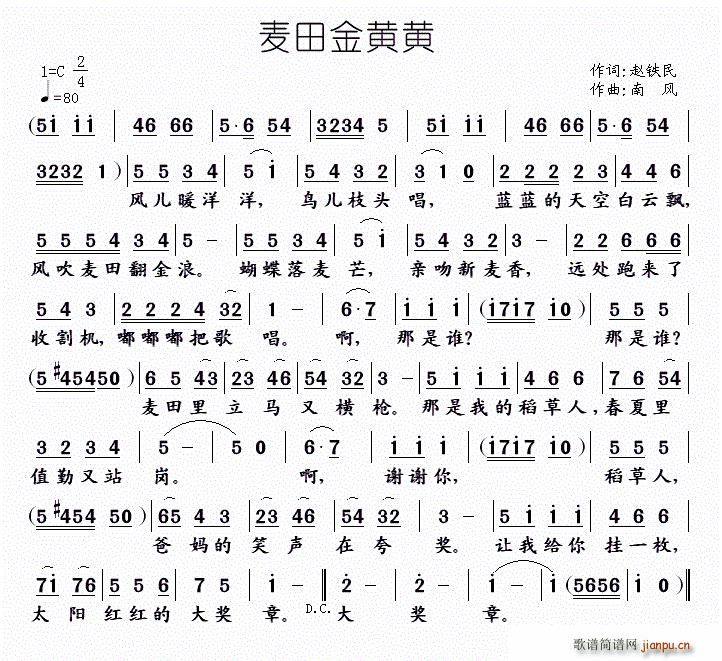 麦田金黄黄
1=C 2/4
♩=80
作词:赵铁民
作曲:南 风
(5i ii | 46 66 | 5·6 54 | 3234 5 | 5i ii | 46 66 | 5·6 54 |
3232 1) | 5 5 3 4 | 5 i | 5 4 3 2 | 3 1 0 | 2 2 2 2 3 | 4 4 6 |
风儿暖洋 洋, 鸟儿枝头 唱, 蓝蓝的天空白云飘,
5 5 5 4 3 4 | 5 - | 5 5 4 4 | 5 i | 5 5 4 2 | 3 - | 2 2 6 6 6 |
风吹麦田翻金浪。 蝴蝶落麦 芒, 亲吻新麦香, 远处跑来了
5 4 3 | 2 2 2 4 32 | 1 - | 6·7 | i i i | (i7i7 i0) | 5 5 5 |
收割机,嘟嘟嘟把歌 唱。 啊, 那是谁? 那是谁?
(5 #45450) | 6 5 43 | 23 46 | 54 32 | 3 - | 5 i i i | 4 6 6 | 7 6 54 |
麦田里 立马又横枪。那是我的稻草人,春夏里
3 2 3 4 | 5 - | 5 0 | 6·7 | i i i | (i7i7 i0) | 5 5 5 |
值勤又站 岗。 啊, 谢谢你, 稻草人,
(5 #454 50) | 65 4 3 | 23 46 | 54 32 | 3 - | 5 i i i | 6 6 4 |
爸 妈的 笑 声 在 夸 奖。 让我给你 挂一枚,
7i 76 | 5 5 6 | 7 5 | i - :‖ 2 - | 2 - | i - | i - | (5656 | i 0) ‖
太 阳 红红的 大奖 章。D.C.大 奖 章。
歌谱简谱网
jianpu.cn